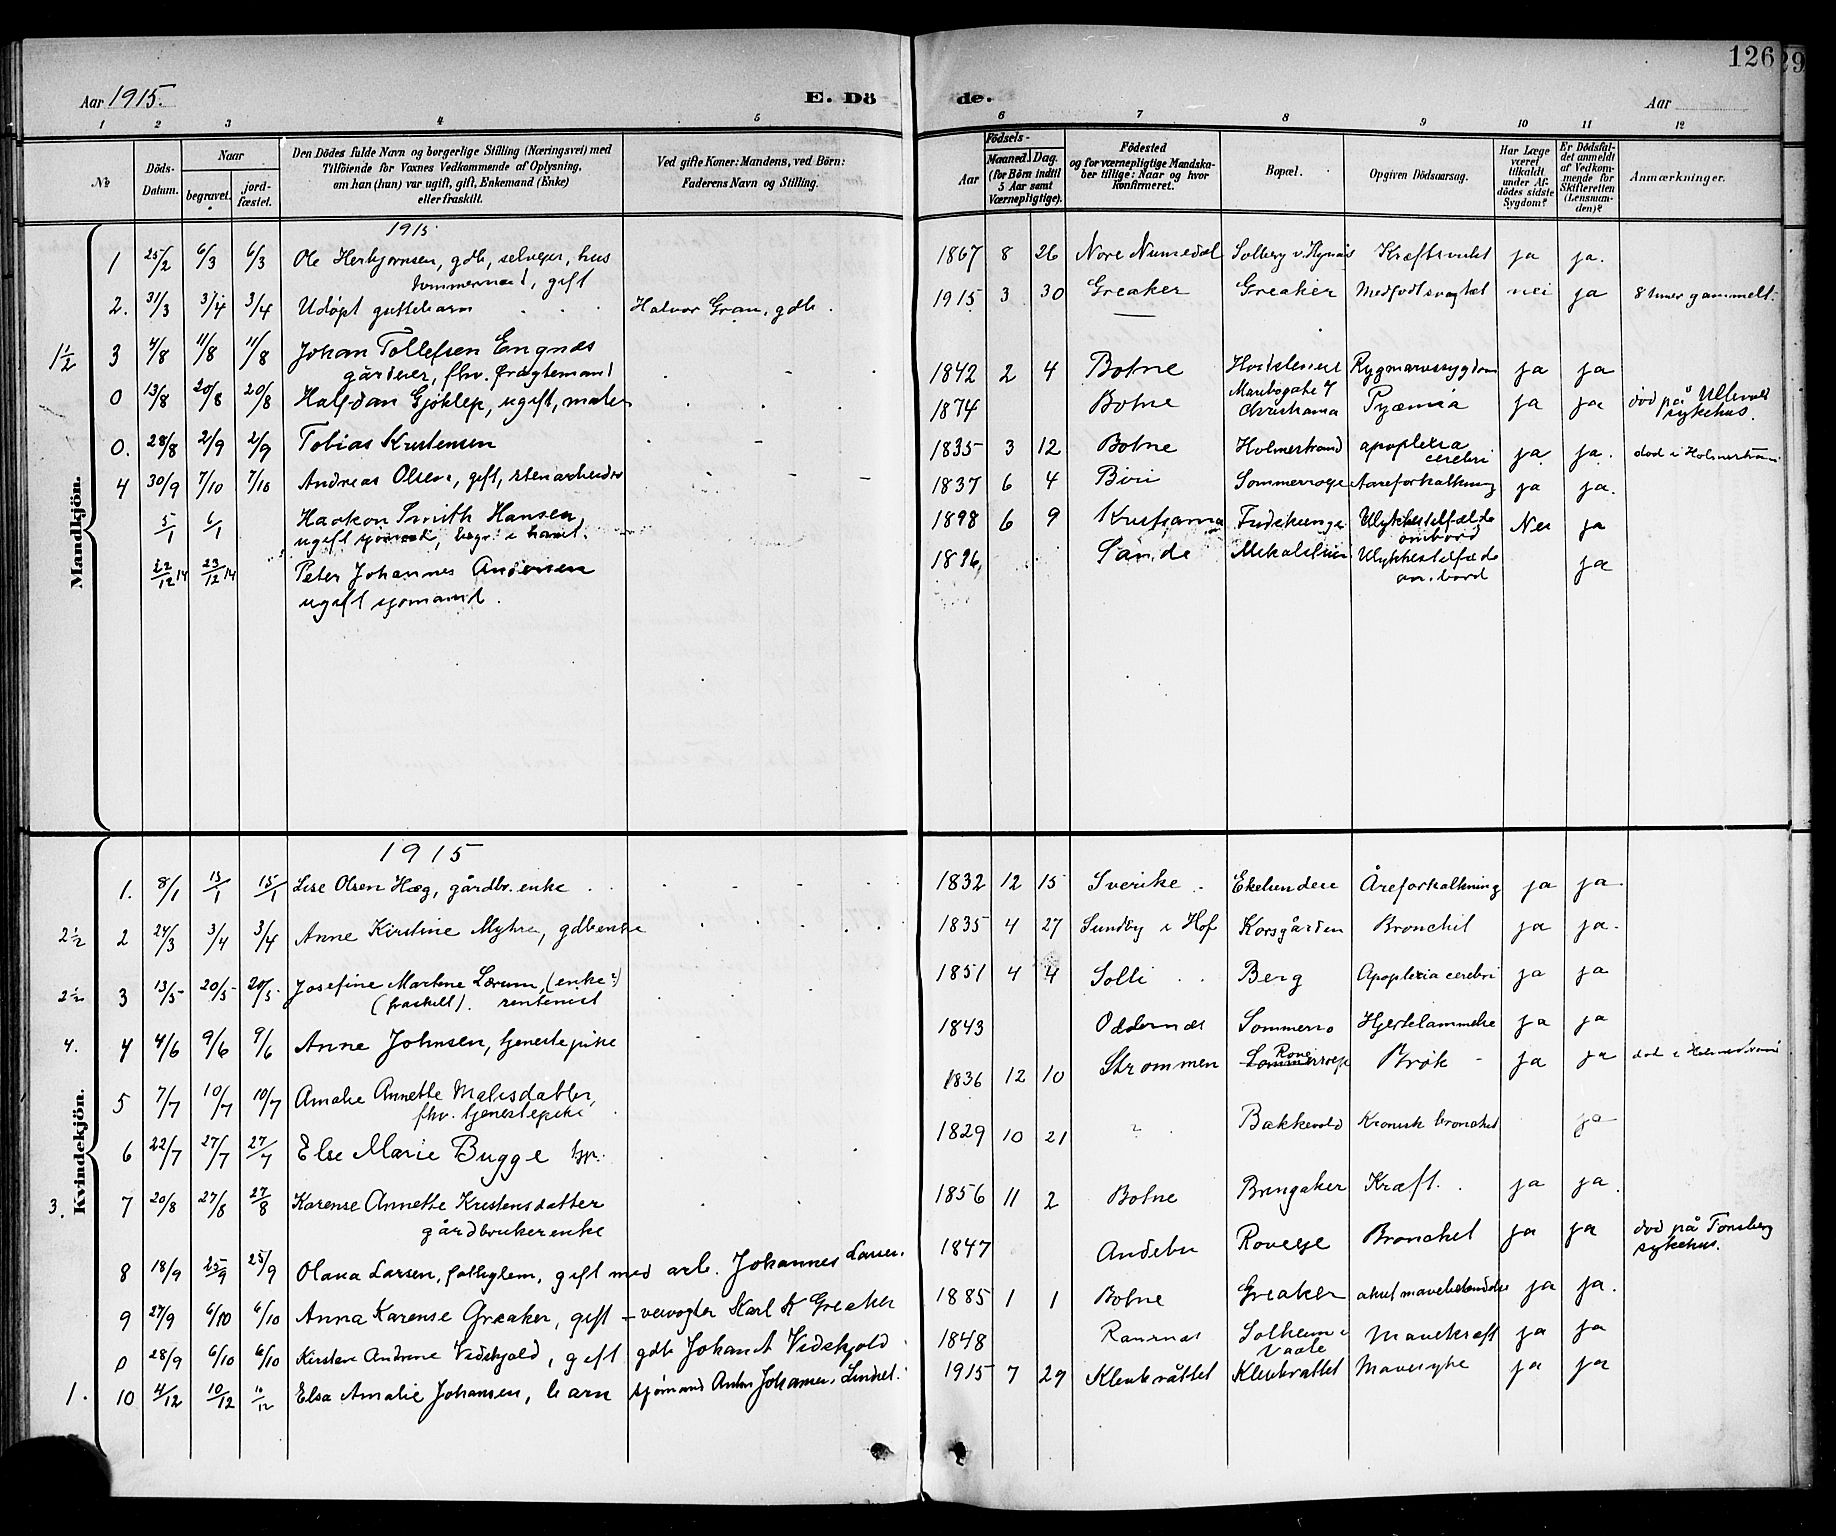 126
29
Aar 1915.
E. Dö
de.
Aar
1 2 3 4 5 6 7 8 9 10 11 12
№
Döds-Datum.
Naar
begravet.
jord-fæstet.
Den Dödes fulde Navn og borgerlige Stilling (Næringsvei) med
Tilföiende for Voxnes Vedkommende af Oplysning,
om han (hun) var ugift, gift, Enkemand (Enke)
eller fraskilt.
Ved gifte Koner: Mandens, ved Börn:
Faderens Navn og Stilling.
Födsels-
Aar
Maaned. Dag.
(for Börn indtil
5 Aar samt
Værnepligtige).
Födested
og for værnepligtige Mandska-
ber tillige: Naar og hvor
konfirmeret.
Bopæl.
Opgiven Dödsaarsag.
Har Læge
været
tilkaldt
under Af-
dödes sidste
Sygdom?
Er Dödsfal-
det anmeldt
af Vedkom-
mende for
Skifteretten
(Lensman-
den)?
Anmærkninger.
Mandkjön.
1915
1 25/2 6/3 6/3 Ole Herbjørnsen, gdb, selveier, hus 1867 8 26 Nore Numedal Solberg v. Kræft ja ja.
tømmermand, gift
2. 31/3 3/4 3/4 Udøpt guttebarn Halvor Gran, gdb. 1915 3 30 Greaker Greaker Medfødt svaghet nei ja 8 timer gammelt.
1½ 3 4/8 11/8 11/8 Johan Tollefsen Engnes 1842 2 4 Botne Rygmarvssygdom ja ja
gårdeier, fhv. fragtemand
0 13/8 20/8 20/8 Halfdan Gjøklep, ugift, maler 1874 Botne Maribogate 7 Christiania Pyæmia ja ja død på Ullevål sykehus.
0. 28/8 2/9 2/9 Tobias Kristensen 1835 3 12 Botne Holmestrand apoplexia cerebri ja ja. død i Holmestrand
4 30/9 7/10 7/10 Andreas Olsen, gift, stenarbeider 1837 6 4 Biri Sommerroe Aareforkalkning ja ja.
5/1 6/1 Haakon Smith Hansen 1898 6 9 Kristiania Ulykkestilfælde ombord Nei ja
ugift sjømand, begr. i havet.
22/12 14 23/12 14 Peter Johannes Andersen 1896 Sande Ulykkestilfælde om bord ja
ugift sjømand.
Kvindekjön.
1915
1. 8/1 15/1 15/1 Lise Olsen Hæg, gårdbr. enke 1832 12 15 Sverike Ekelundeie Åreforkalkning ja ja
2½ 2 24/3 3/4 3/4 Anne Kirstine Myhre, gdbenke 1835 4 27 Sundby i Hof Korsgården Bronchit ja ja.
2½ 3 13/5 20/5 20/5 Josefine Martine Lærum, (enke?) 1851 4 4 Solli Berg Apoplexia cerebri ja ja
(fraskilt). rentenist
4. 4 4/6 9/6 9/6 Anne Johnsen, tjenestepike 1843 Oddernæs Sommerro Hjertelammelse ja ja
5 7/7 10/7 10/7 Amalie Annette Mathisdatter, 1836 12 10 Strømmen Rove Brøk ja ja død i Holmestrand
fhv. tjenestepike
6 22/7 27/7 27/7 Else Marie Bugge 1829 10 21 Bakkevold Kronisk bronchit ja
3. 7 20/8 27/8 27/8 Karense Annette Kristensdatter 1856 11 2 Botne Bringaker Kræft. ja ja.
gårdbrukerenke
8 18/9 25/9 25/9 Olava Larsen, fattiglem, gift med arb. Johannes Larsen. 1847 Andebu Roveje Bronchit ja ja død på Tønsberg sykehus.
9 27/9 6/10 6/10 Anna Karense Greaker, gift - veivogter Karl K Greaker 1885 1 1 Botne Greaker akut mavebetændelse ja ja.
0 28/9 6/10 6/10 Kirstine Andrine Vidskjold, gift gdb Johan A Vidskjold 1848 Ramnes Solheim i Vaale Mavekræft ja ja
1. 10 4/12 10/12 10/12 Elsa Amalie Johansen, barn sjømand Anton Johansen, 1915 7 29 Klevbråttet Klevbråttet Mavesyke ja ja